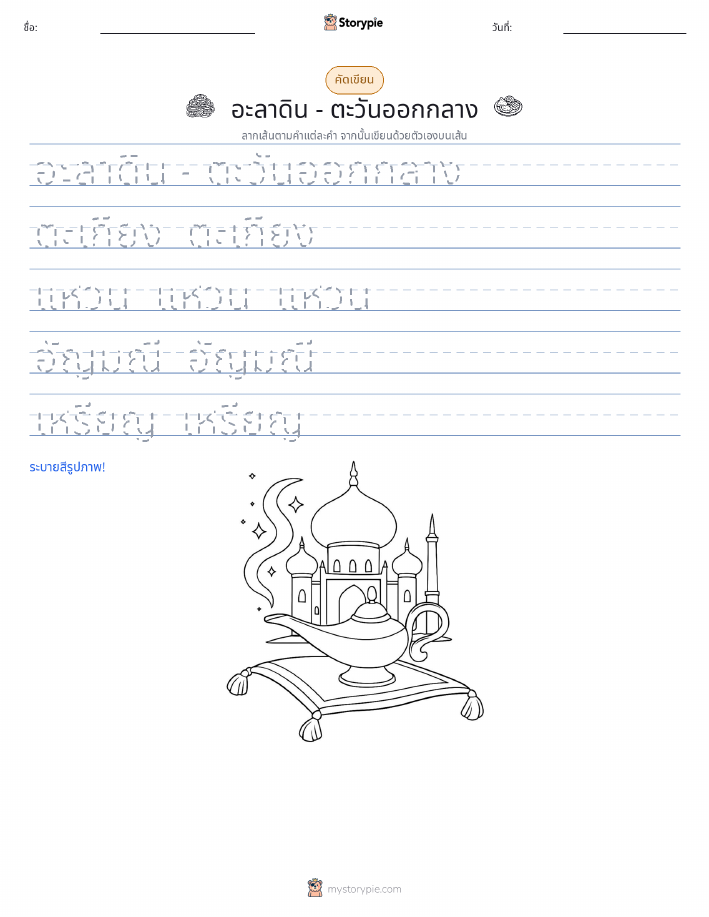 ชื่อ:
Storypie
วันที่:
คัดเขียน
อะลาดิน - ตะวันออกกลาง
ลากเส้นตามคำแต่ละคำ จากนั้นเขียนด้วยตัวเองบนเส้น
อะลาดิน - ตะวันออกกลาง
ตะเกียง ตะเกียง
แหวน แหวน แหวน
อัญมณี อัญมณี
เหรียญ เหรียญ
ระบายสีรูปภาพ!
mystorypie.com